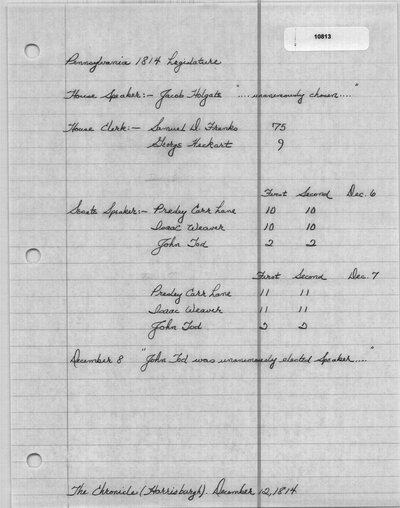 10813
Pennsylvania 1814 Legislature
House Speaker:- Jacob Holgate "....unanimously chosen...."
House Clerk:- Samuel D. Franks 75
George Heckart 9
First Second Dec. 6
Senate Speaker:- Presley Carr Lane 10 10
Isaac Weaver 10 10
John Tod 2 2
First Second Dec. 7
Presley Carr Lane 11 11
Isaac Weaver 11 11
John Tod 2 2
December 8 "John Tod was unanimously elected Speaker....."
The Chronicle (Harrisburgh). December 12, 1814